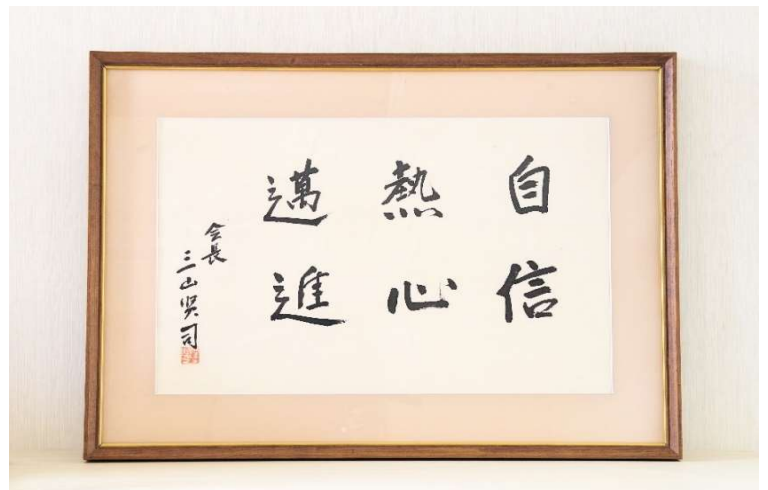 自信
熱心
邁進
会長
三山賢司